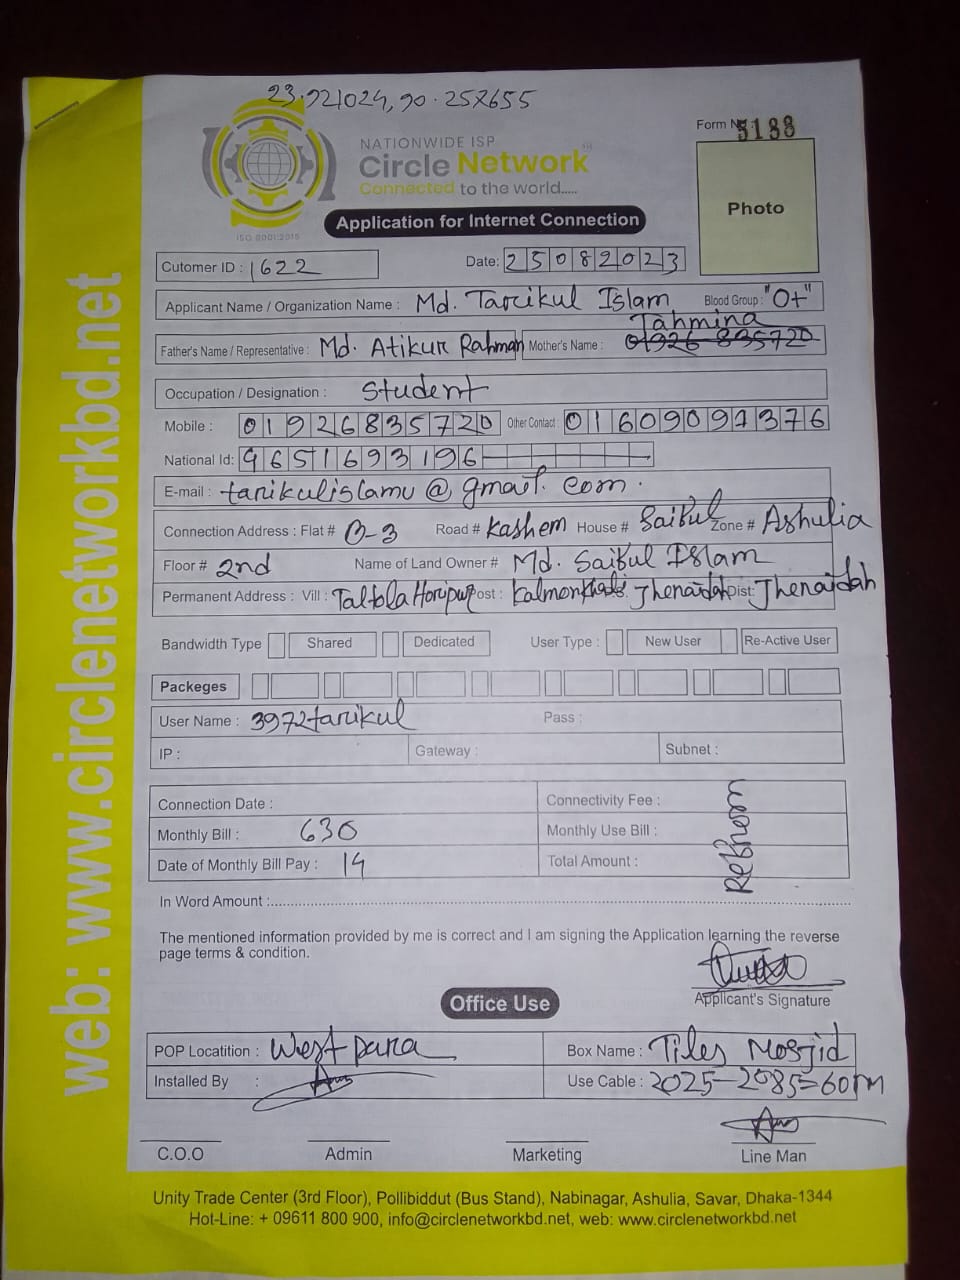 23.921024, 90.257655
NATIONWIDE ISP
Circle Network
Connected to the world.....
ISO 9001:2015
Form No. 5188
Photo
Application for Internet Connection
Cutomer ID : 1622
Date: 25082023
Applicant Name / Organization Name : Md. Tarikul Islam Blood Group : "O+"
Tahmina
Father's Name / Representative : Md. Atikur Rahman Mother's Name : 01926-835720
Occupation / Designation : Student
Mobile : 01926835720 Other Contact : 01609091376
National Id: 9651693196
E-mail : tarikulislamu@gmail.com.
Connection Address : Flat # B-3 Road # Kashem House # Saiful Zone # Ashulia
Floor # 2nd Name of Land Owner # Md. Saiful Islam
Permanent Address : Vill : Taltola Horipur Post : Jhenaidah Dist: Jhenaidah
Bandwidth Type Shared Dedicated User Type : New User Re-Active User
Packeges
User Name : 3972tarikul Pass :
IP : Gateway : Subnet :
Connection Date : Connectivity Fee :
Monthly Bill : 630 Monthly Use Bill :
Date of Monthly Bill Pay : 14 Total Amount :
In Word Amount :
The mentioned information provided by me is correct and I am signing the Application learning the reverse
page terms & condition.
Applicant's Signature
Office Use
POP Locatition : West para Box Name : Tiles Mosjid
Installed By : Use Cable : 2025-2085=60m
C.O.O Admin Marketing Line Man
Unity Trade Center (3rd Floor), Pollibiddut (Bus Stand), Nabinagar, Ashulia, Savar, Dhaka-1344
Hot-Line: + 09611 800 900, info@circlenetworkbd.net, web: www.circlenetworkbd.net
web: www.circlenetworkbd.net